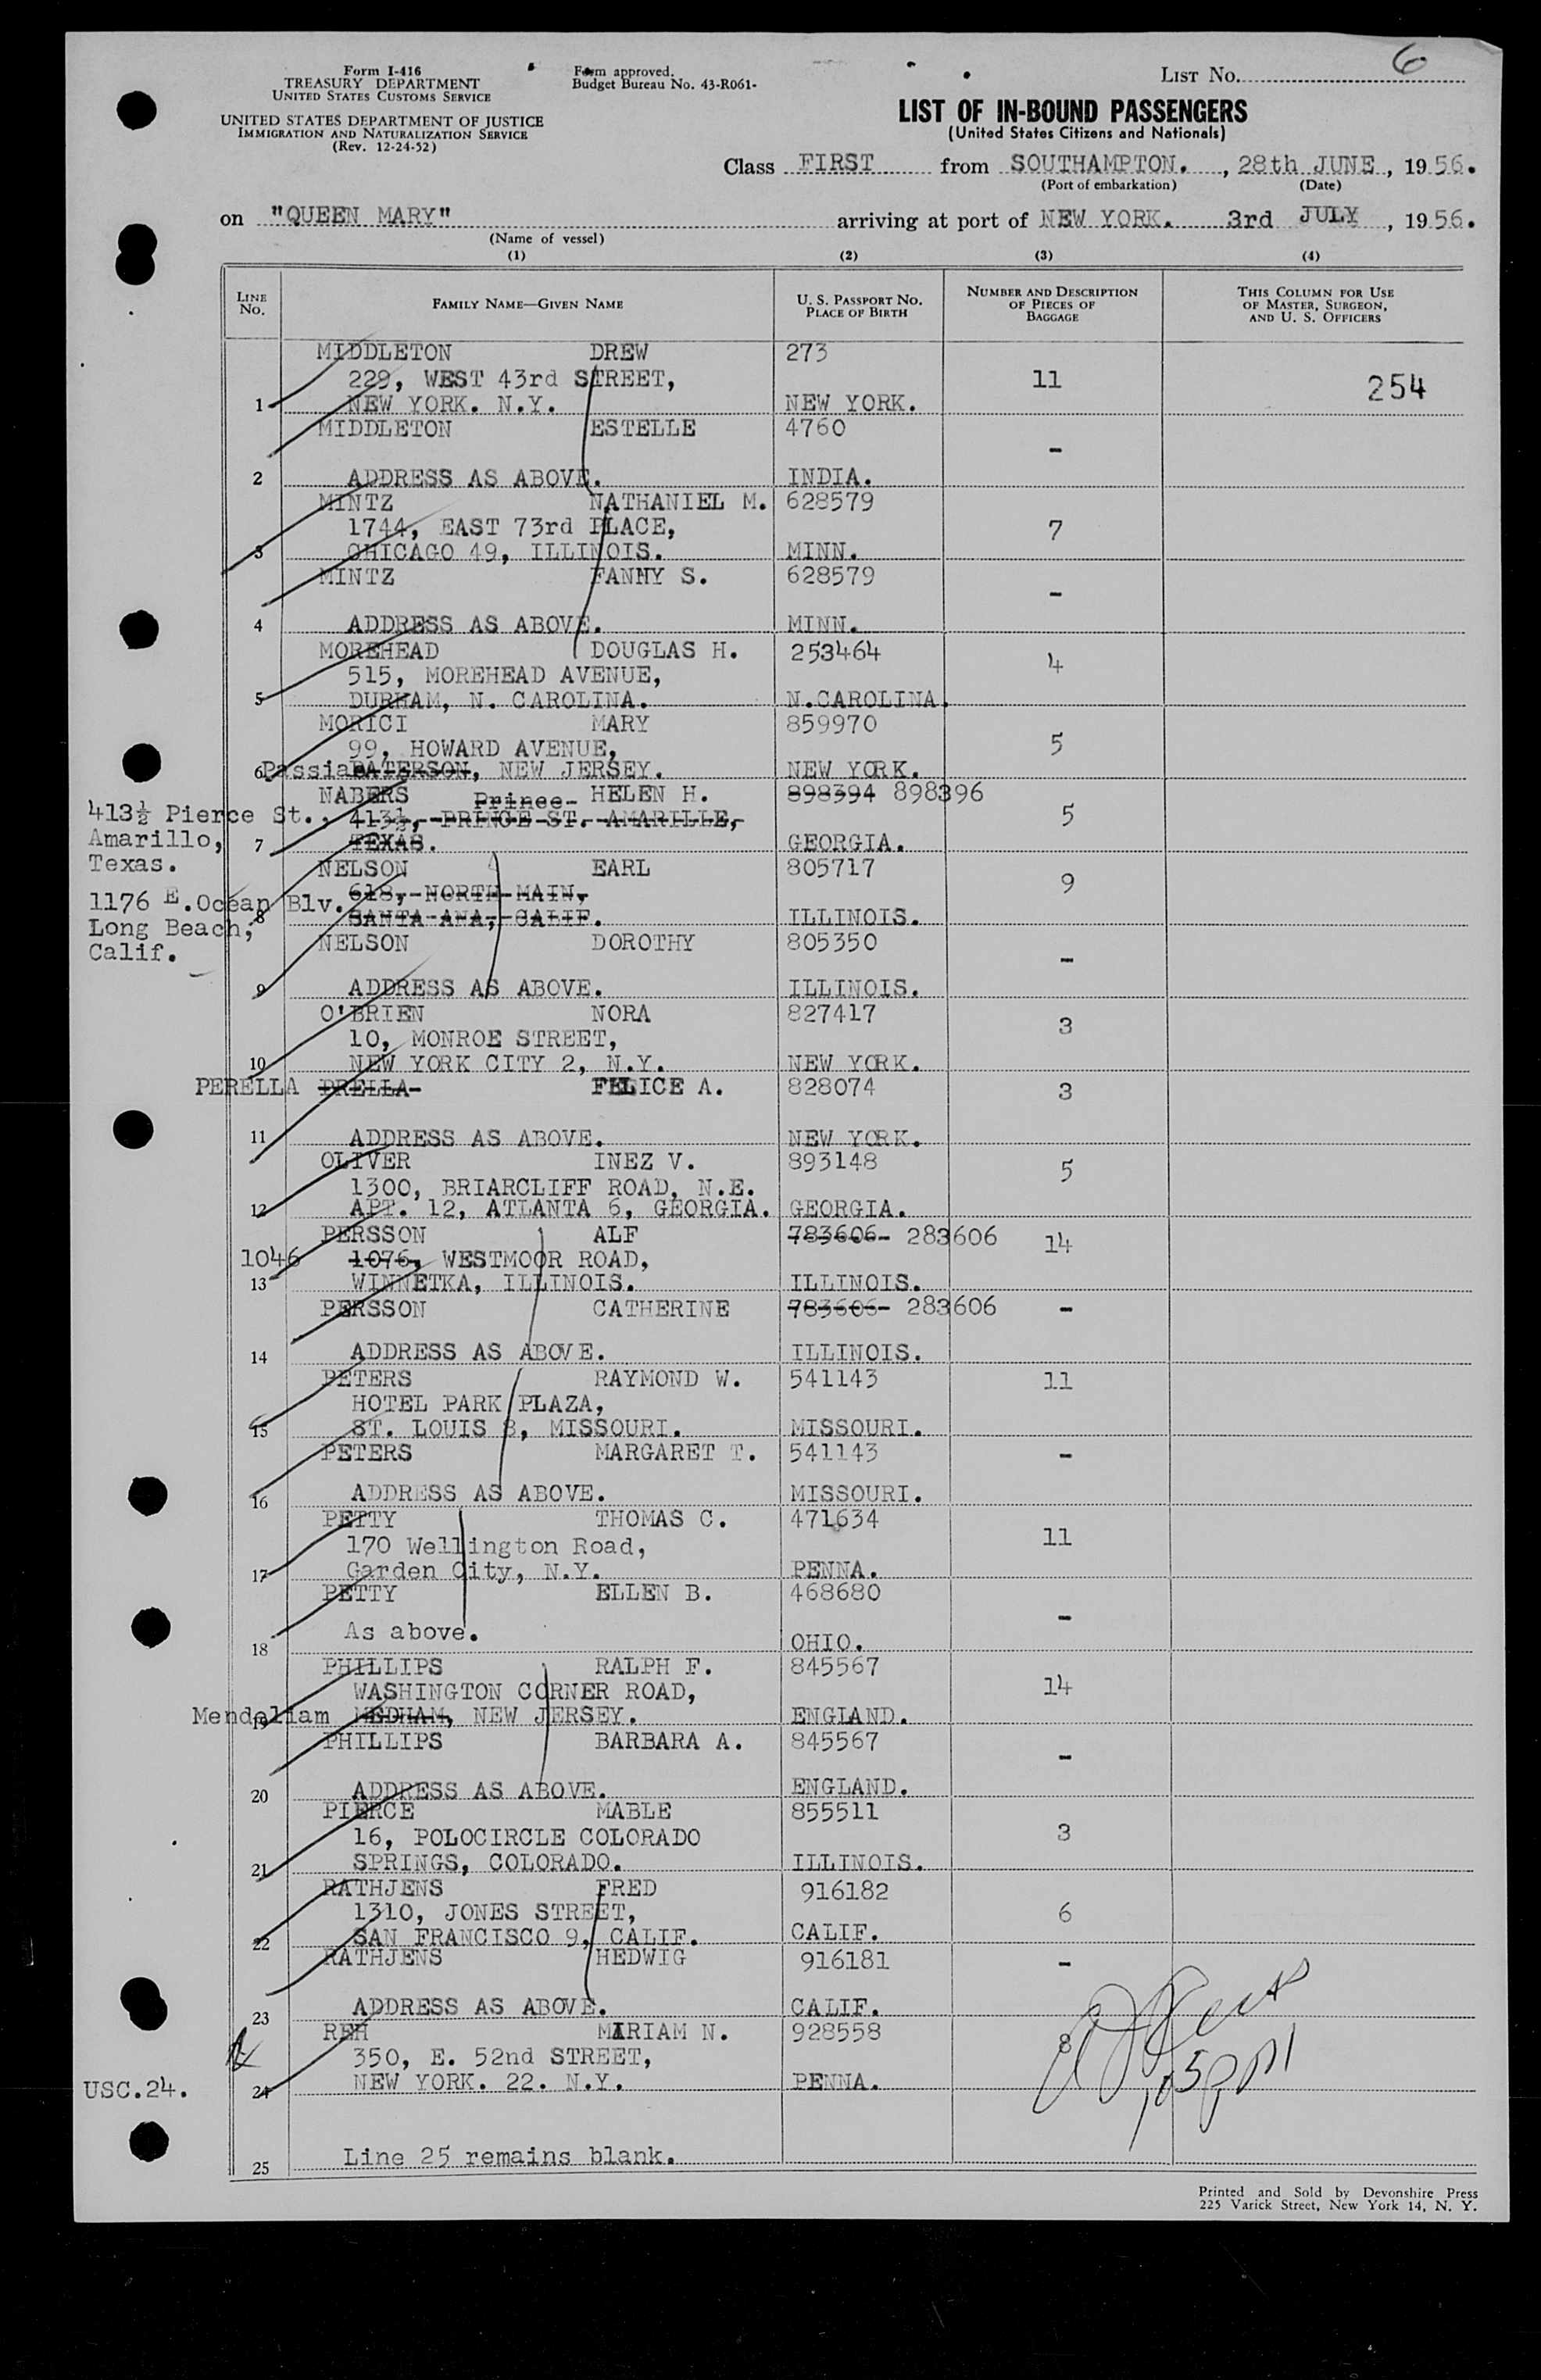 Form I-416
TREASURY DEPARTMENT
UNITED STATES CUSTOMS SERVICE
UNITED STATES DEPARTMENT OF JUSTICE
IMMIGRATION AND NATURALIZATION SERVICE
(Rev. 12-24-52)
Form approved.
Budget Bureau No. 43-R061-
LIST NO. 6
LIST OF IN-BOUND PASSENGERS
(United States Citizens and Nationals)
Class FIRST from SOUTHAMPTON. , 28th JUNE , 1956.
(Port of embarkation) (Date)
on "QUEEN MARY" arriving at port of NEW YORK. 3rd JULY , 1956.
(Name of vessel)
(1) (2) (3) (4)
LINE NO. FAMILY NAME—GIVEN NAME U. S. PASSPORT NO. PLACE OF BIRTH NUMBER AND DESCRIPTION OF PIECES OF BAGGAGE THIS COLUMN FOR USE OF MASTER, SURGEON, AND U. S. OFFICERS
MIDDLETON DREW 273
229, WEST 43rd STREET, 11 254
1 NEW YORK. N.Y. NEW YORK.
MIDDLETON ESTELLE 4760
-
2 ADDRESS AS ABOVE. INDIA.
MINTZ NATHANIEL M. 628579
1744, EAST 73rd PLACE, 7
3 CHICAGO 49, ILLINOIS. MINN.
MINTZ FANNY S. 628579
-
4 ADDRESS AS ABOVE. MINN.
MOREHEAD DOUGLAS H. 253464
515, MOREHEAD AVENUE, 4
5 DURHAM, N. CAROLINA. N.CAROLINA.
MORICI MARY 859970
99, HOWARD AVENUE, 5
6 Passia PATERSON, NEW JERSEY. NEW YORK.
NABERS Prince- HELEN H. 898394 898396
413½ Pierce St., 413½, PRINCE ST. AMARILLE, 5
Amarillo, 7 TEXAS. GEORGIA.
Texas.
NELSON EARL 805717
1176 E.Ocean Blv. 618, NORTH MAIN, 9
8 SANTA ANA, CALIF. ILLINOIS.
Long Beach,
Calif.
NELSON DOROTHY 805350
-
9 ADDRESS AS ABOVE. ILLINOIS.
O'BRIEN NORA 827417
10, MONROE STREET, 3
10 NEW YORK CITY 2, N.Y. NEW YORK.
PERELLA PRELLA FELICE A. 828074 3
11 ADDRESS AS ABOVE. NEW YORK.
OLIVER INEZ V. 893148
1300, BRIARCLIFF ROAD, N.E. 5
12 APT. 12, ATLANTA 6, GEORGIA. GEORGIA.
PERSSON ALF 783606- 283606 14
1046 1076, WESTMOOR ROAD,
13 WINNETKA, ILLINOIS. ILLINOIS.
PERSSON CATHERINE 783606- 283606 -
14 ADDRESS AS ABOVE. ILLINOIS.
PETERS RAYMOND W. 541143 11
HOTEL PARK PLAZA,
15 ST. LOUIS 8, MISSOURI. MISSOURI.
PETERS MARGARET T. 541143 -
16 ADDRESS AS ABOVE. MISSOURI.
PETTY THOMAS C. 471634
170 Wellington Road, 11
17 Garden City, N.Y. PENNA.
PETTY ELLEN B. 468680
-
As above.
18 OHIO.
PHILLIPS RALPH F. 845567
WASHINGTON CORNER ROAD, 14
19 MEDHAM, NEW JERSEY. ENGLAND.
PHILLIPS BARBARA A. 845567
-
20 ADDRESS AS ABOVE. ENGLAND.
PIERCE MABLE 855511
16, POLOCIRCLE COLORADO 3
21 SPRINGS, COLORADO. ILLINOIS.
RATHJENS FRED 916182
1310, JONES STREET, 6
22 SAN FRANCISCO 9, CALIF. CALIF.
RATHJENS HEDWIG 916181
-
23 ADDRESS AS ABOVE. CALIF.
REH MIRIAM N. 928558
350, E. 52nd STREET, 8
USC.24. 24 NEW YORK. 22. N.Y. PENNA.
25 Line 25 remains blank.
Printed and Sold by Devonshire Press
225 Varick Street, New York 14, N. Y.